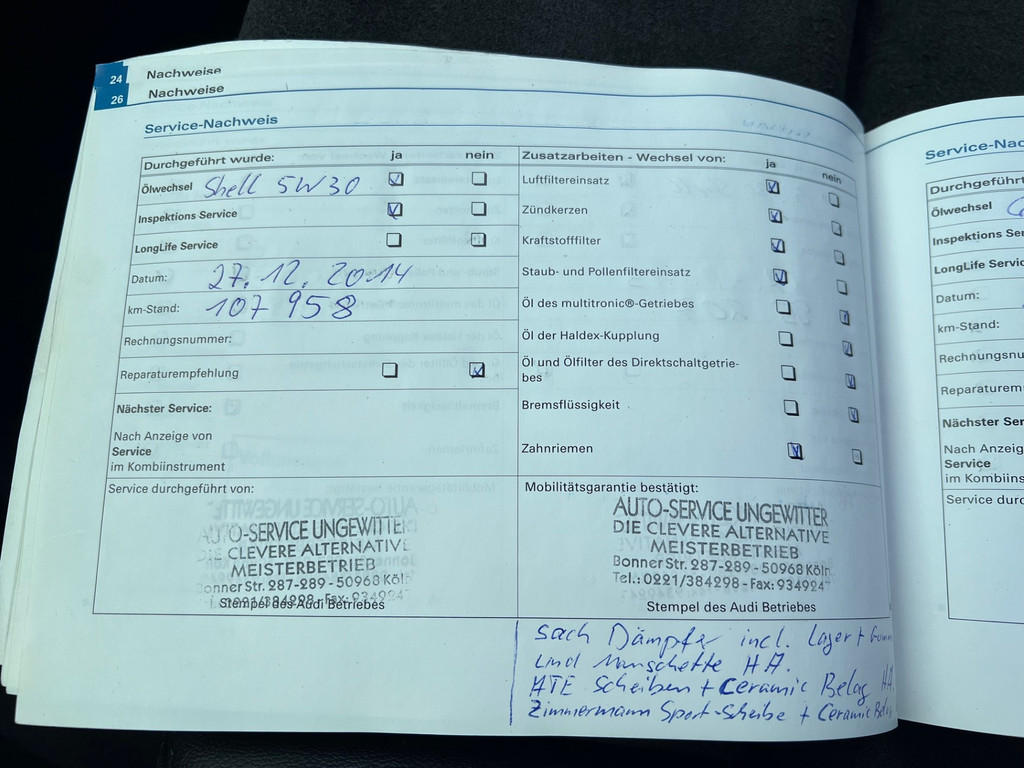 24 Nachweise
26 Nachweise
Service-Nachweis
Durchgeführt wurde: ja nein
Ölwechsel Shell 5W30
Inspektions Service
LongLife Service
Datum: 27.12.2014
km-Stand: 107 958
Rechnungsnummer:
Reparaturempfehlung
Nächster Service:
Nach Anzeige von
Service
im Kombiinstrument
Service durchgeführt von:
AUTO-SERVICE UNGEWITTER
DIE CLEVERE ALTERNATIVE
MEISTERBETRIEB
Bonner Str. 287-289 - 50968 Köln
0221/384298 - Fax: 934924
Stempel des Audi Betriebes
Zusatzarbeiten - Wechsel von: ja nein
Luftfiltereinsatz
Zündkerzen
Kraftstofffilter
Staub- und Pollenfiltereinsatz
Öl des multitronic®-Getriebes
Öl der Haldex-Kupplung
Öl und Ölfilter des Direktschaltgetrie-
bes
Bremsflüssigkeit
Zahnriemen
Mobilitätsgarantie bestätigt:
AUTO-SERVICE UNGEWITTER
DIE CLEVERE ALTERNATIVE
MEISTERBETRIEB
Bonner Str. 287-289 - 50968 Köln
Tel.: 0221/384298 - Fax: 934924
Stempel des Audi Betriebes
Sach Dämpfer incl. Lager +
und Manschette HA.
ATE Scheiben + Ceramic Belag HA.
Zimmermann Sport-Scheibe + Ceramic
Service-Nac
Durchgeführt
Ölwechsel
Inspektions Ser
LongLife Servic
Datum:
km-Stand:
Rechnungsnu
Reparaturem
Nächster Ser
Nach Anzeig
Service
im Kombiins
Service durc